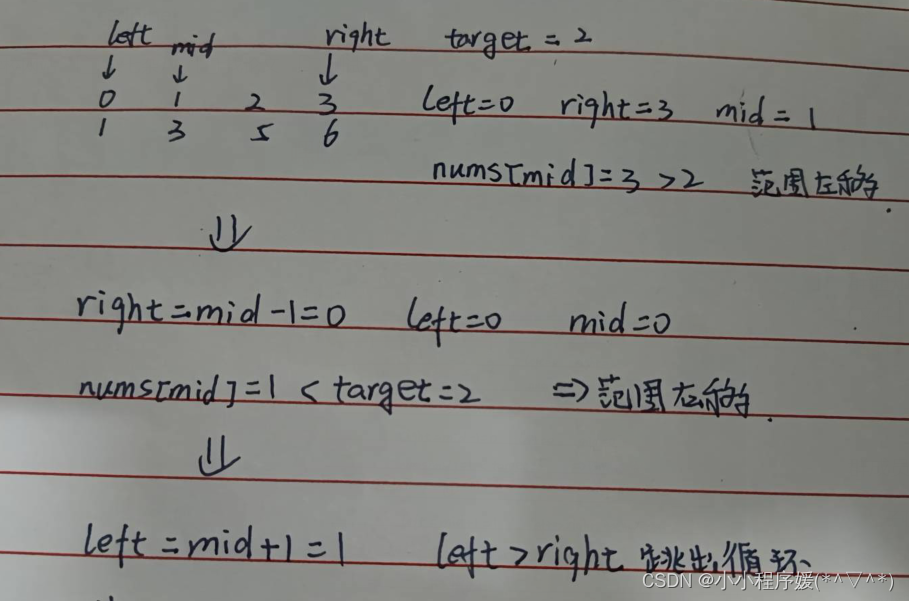 left mid right target = 2
↓ ↓ ↓
0 1 2 3 left=0 right=3 mid=1
1 3 5 6
nums[mid]=3 >2 范围左移.
⇓
right=mid-1=0 left=0 mid=0
nums[mid]=1 < target=2 => 范围左移.
⇓
left =mid+1=1 left>right 跳出循环、
CSDN @小小程序媛(*^▽^*)